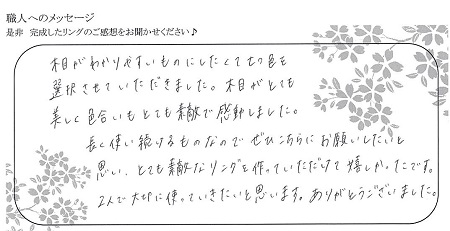 職人へのメッセージ
是非 完成したリングのご感想をお聞かせください♪
木目がわかりやすいものにしたくて七つ目を
選択させていただきました。木目がとても
美しく色合いもとても素敵で感動しました。
長く使い続けるものなので ぜひこちらにお願いしたいと
思い、とても素敵なリングを作っていただけて嬉しかったです。
2人で大切に使っていきたいと思います。ありがとうございました。